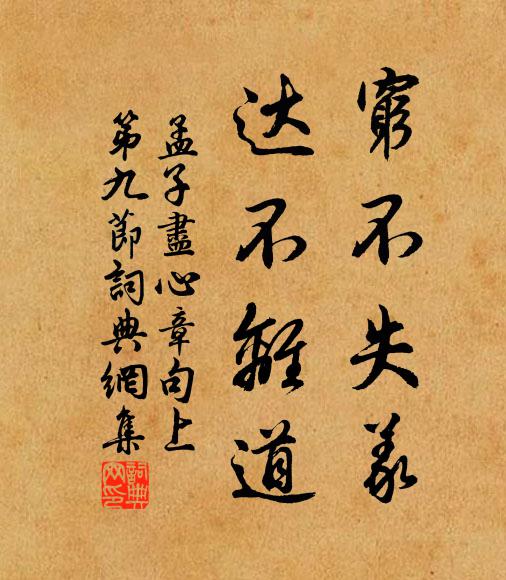 窮不失義
达不離道
孟子盡心章句上
第九節詞典網集
詞典
网印